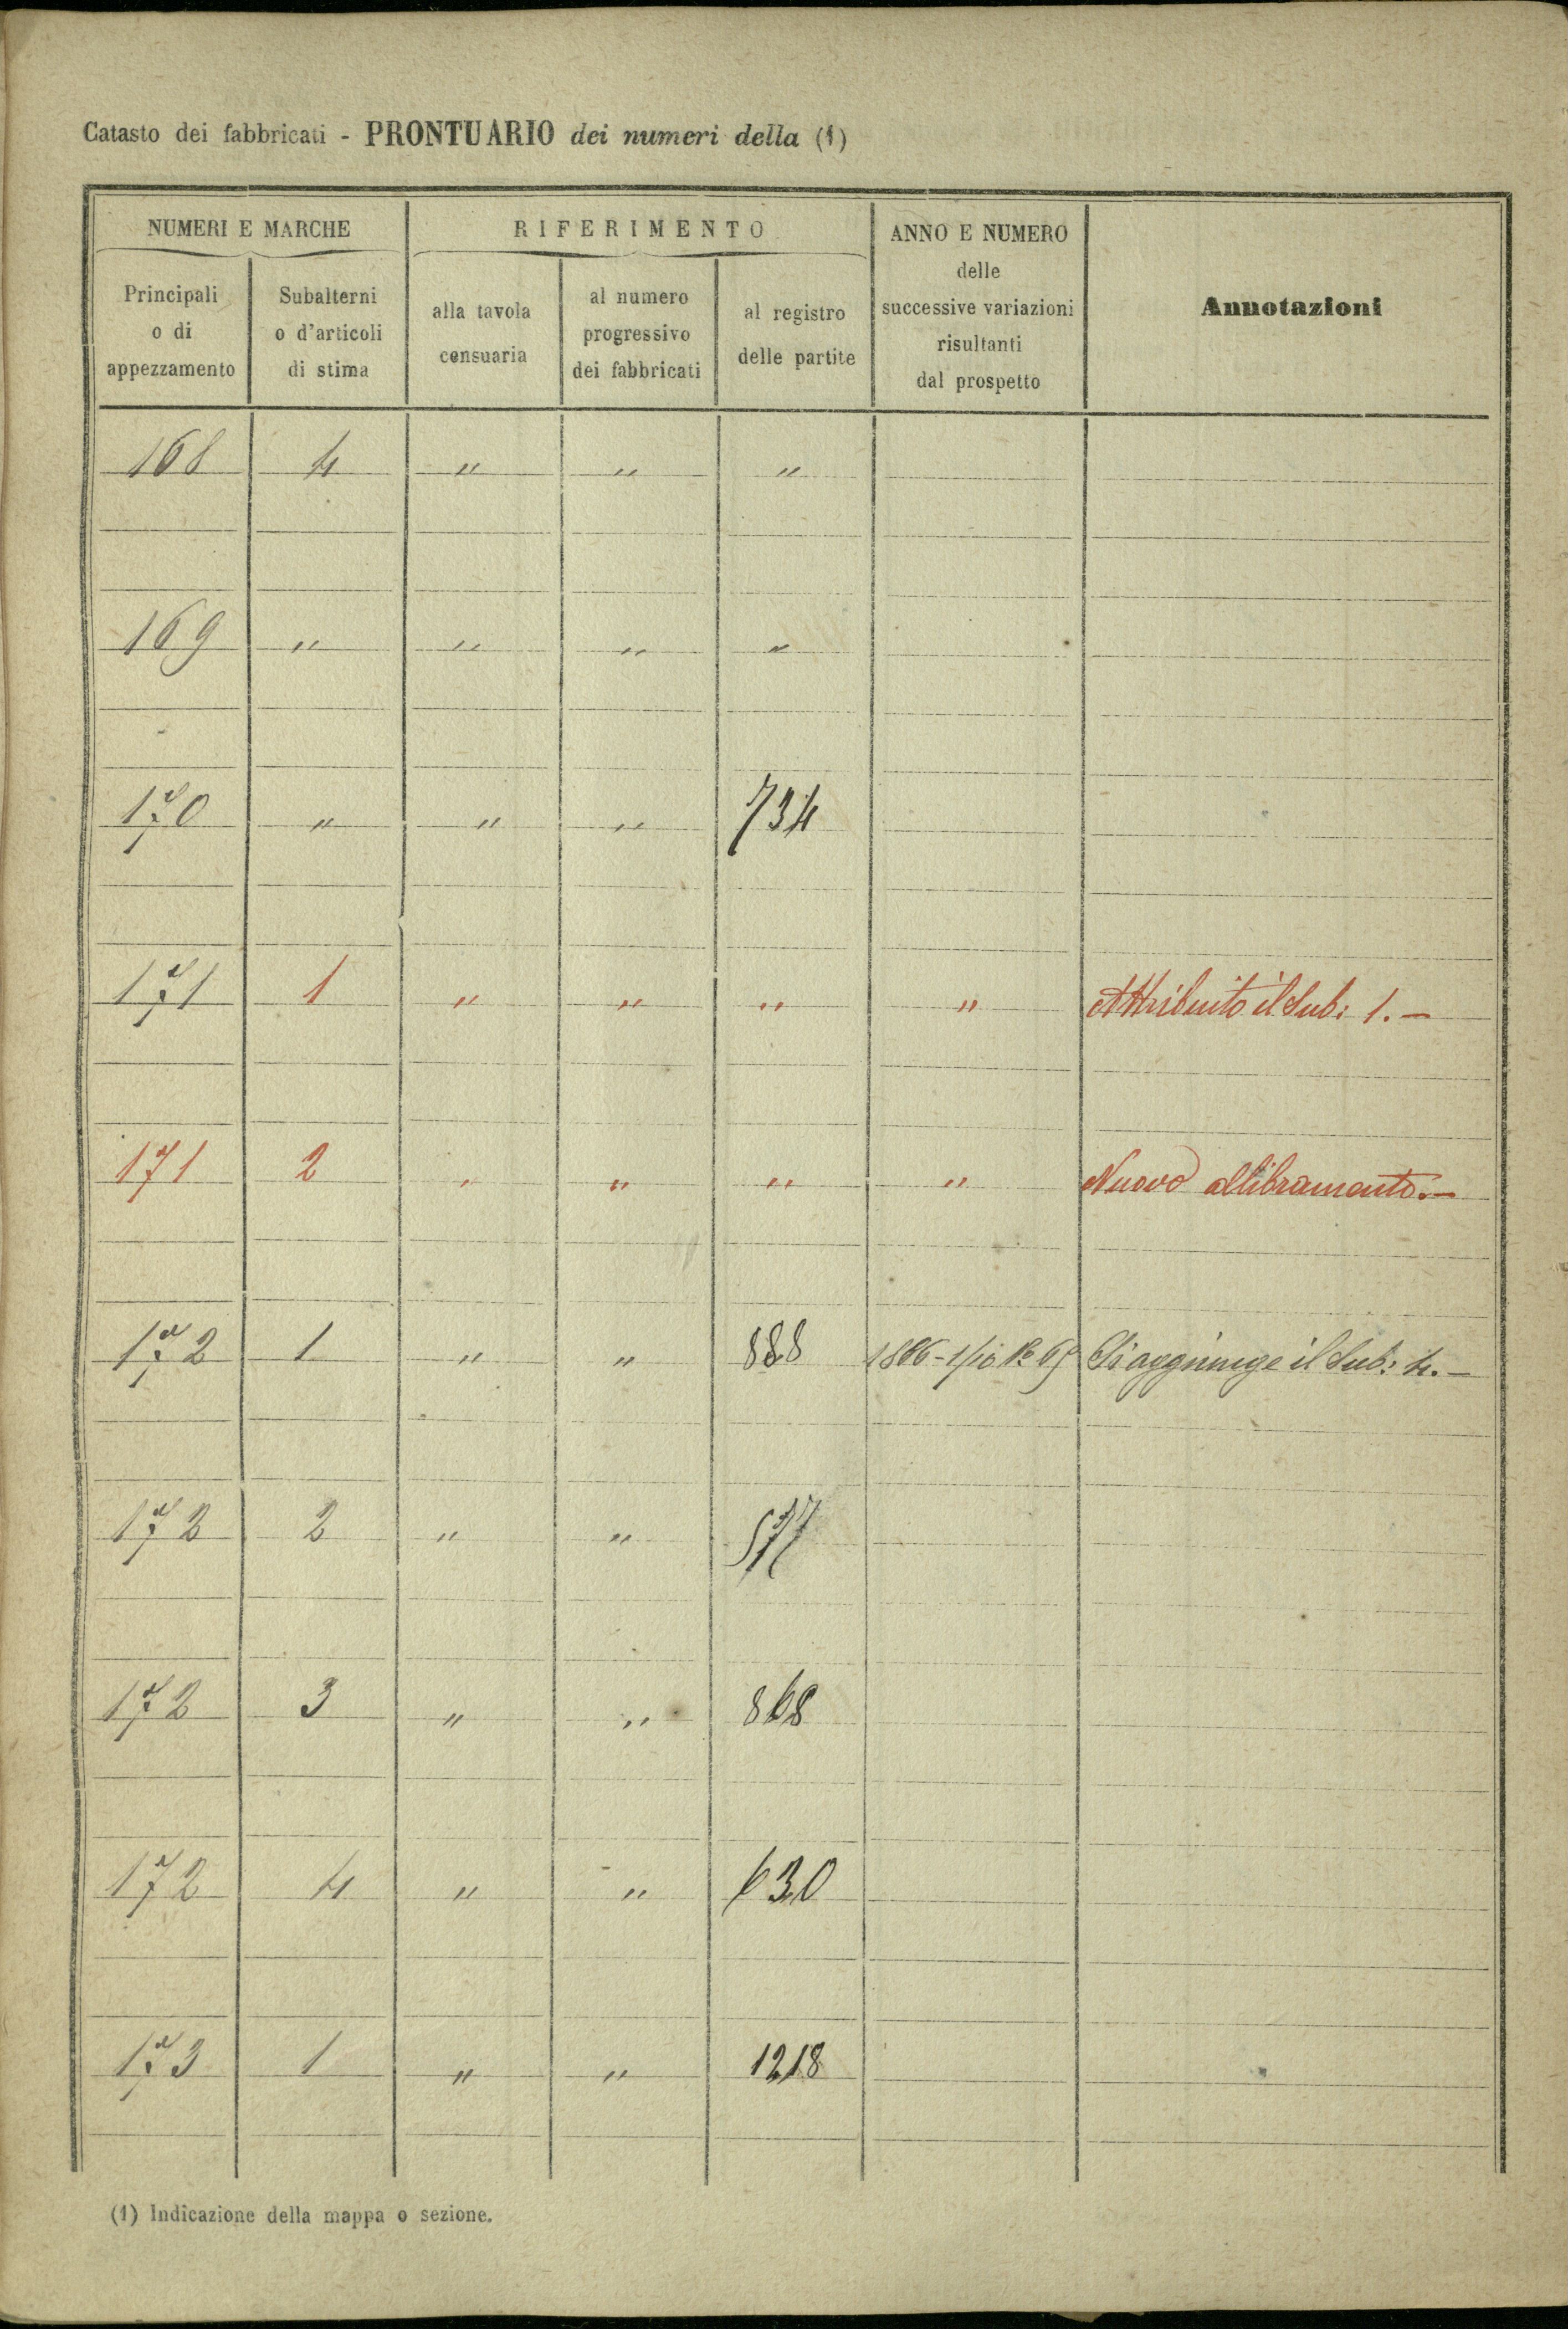 Catasto dei fabbricati - PRONTUARIO dei numeri della (1)
NUMERI E MARCHE
RIFERIMENTO
ANNO E NUMERO
delle
successive variazioni
risultanti
dal prospetto
Annotazioni
Principali
o di
appezzamento
Subalterni
o d'articoli
di stima
alla tavola
censuaria
al numero
progressivo
dei fabbricati
al registro
delle partite
168 4 " " "
169 " " " "
170 " " " 734
171 1 " " " " Attribuito il Sub: 1. -
171 2 " " " " Nuovo allibramento. -
172 1 " " 888 1886 - 1/10 Si aggiunge il Sub: 4. -
172 2 " "
172 3 " " 868
172 4 " " 630
173 1 " " 1218
(1) Indicazione della mappa o sezione.